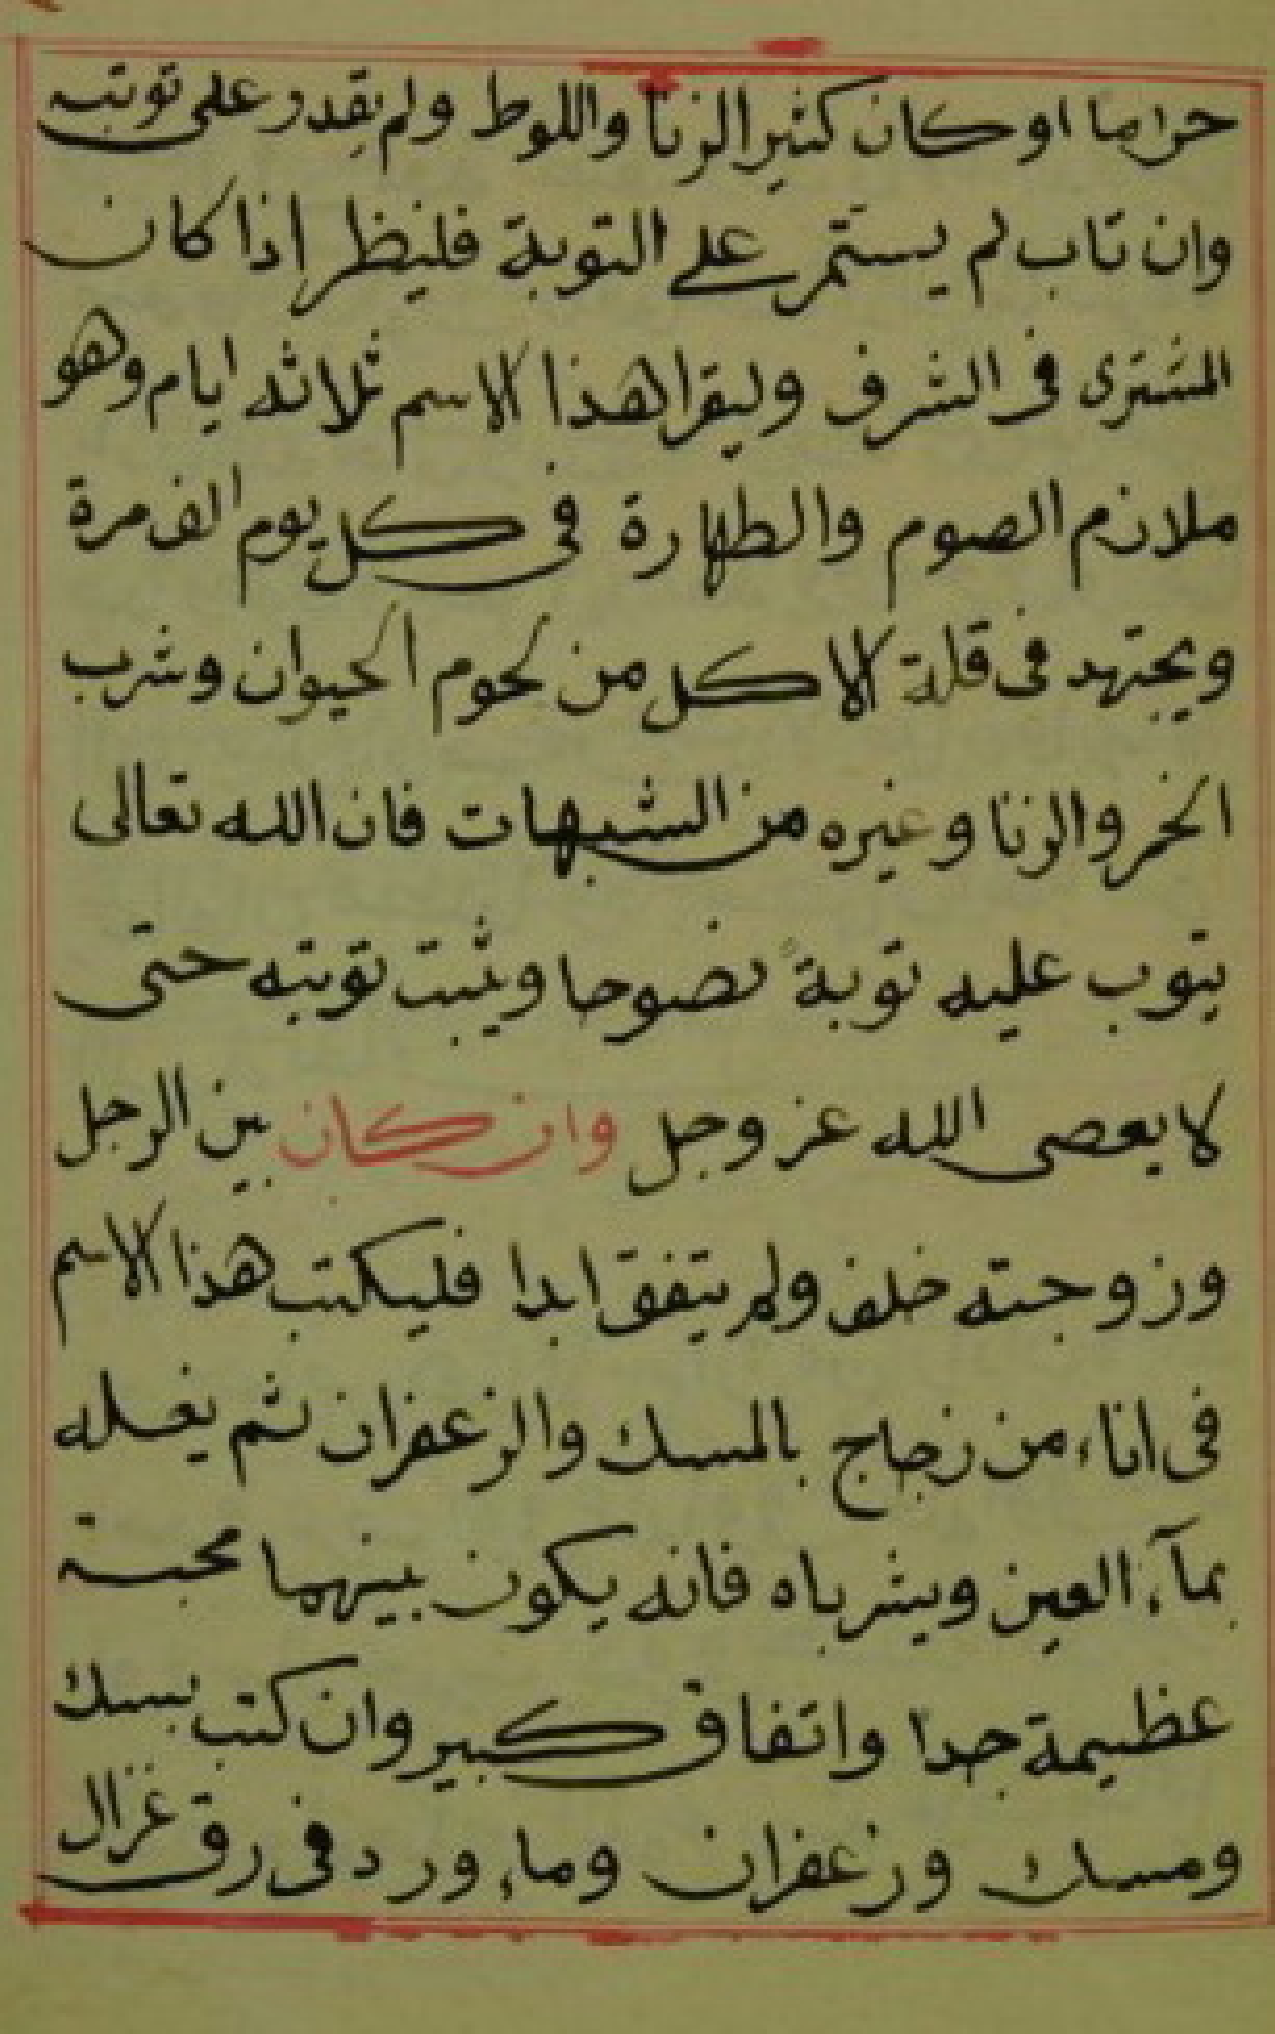 حراما او كان كثير الزنا واللوط ولم يقدر على توبته
وان تاب لم يستمر على التوبة فلينظر اذا كان
المشترى فى الشرف وليقرا هذا الاسم ثلاثه ايام وهو
ملازم الصوم والطهارة فى كل يوم الف مرة
ويجتهد فى قلة الاكل من لحوم الحيوان وشرب
الخمر والزنا وغيره من الشبهات فان الله تعالى
يتوب عليه توبةً نضوحا ويثبت توبته حتى
لا يعصى الله عز وجل وان كان بين الرجل
وزوجته خلف ولم يتفق ابدا فليكتب هذا الاسم
فى اناء من زجاج بالمسك والزعفران ثم يغسله
بمآء العين ويشرباه فانه يكون بينهما محبة
عظيمة جدا واتفاق كبير وان كتب بسك
ومسك وزعفران وماء ورد فى رق غزال